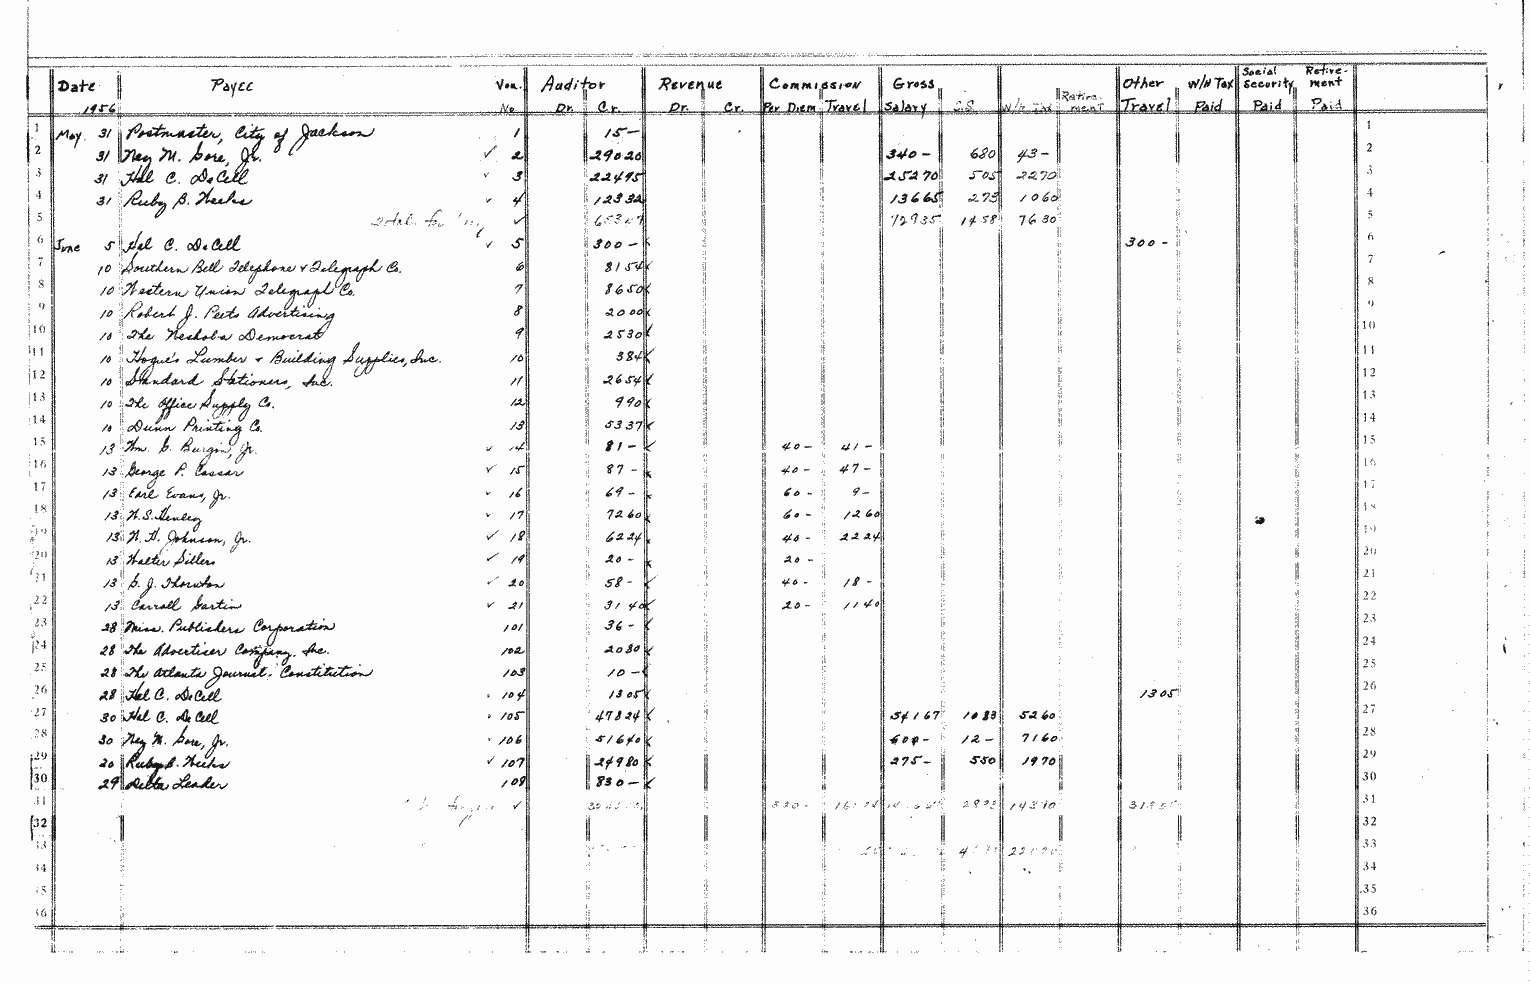 Date Payee Vou. Auditor Revenue Commission Gross Other W/H Tax Social Security Retirement
1956 No. Dr. Cr. Dr. Cr. Per Diem Travel Salary S.S. W/H Tax Retirement Travel Paid Paid Paid
1 May 31 Postmaster, City of Jackson 1 15 — 1
2 31 Ney M. Gore, Jr. ✓ 2 290 20 340 - 6 80 43 - 2
3 31 Hal C. DeCell ✓ 3 224 95 252 70 5 05 22 70 3
4 31 Ruby B. Weeks ✓ 4 123 32 136 65 2 73 10 60 4
5 Total for May ✓ 653 47 729 35 14 58 76 30 5
6 June 5 Hal C. DeCell ✓ 5 300 - 300 - 6
7 10 Southern Bell Telephone & Telegraph Co. 6 81 54 7
8 10 Western Union Telegraph Co. 7 86 50 8
9 10 Robert J. Peets Advertising 8 20 00 9
10 10 The Neshoba Democrat 9 25 30 10
11 10 Hogue's Lumber & Building Supplies, Inc. 10 3 84 11
12 10 Standard Stationers, Inc. 11 26 54 12
13 10 The Office Supply Co. 12 9 90 13
14 10 Dunn Printing Co. 13 53 37 14
15 13 Wm. G. Burgin, Jr. ✓ 14 81 - 40 - 41 - 15
16 13 George P. Cossar ✓ 15 87 - 40 - 47 - 16
17 13 Earl Evans, Jr. ✓ 16 69 - 60 - 9 - 17
18 13 W. S. Henley ✓ 17 72 60 60 - 12 60 18
19 13 W. H. Johnson, Jr. ✓ 18 62 24 40 - 22 24 19
20 13 Walter Sillers ✓ 19 20 - 20 - 20
21 13 G. J. Thornton ✓ 20 58 - 40 - 18 - 21
22 13 Carroll Gartin ✓ 21 31 40 20 - 11 40 22
23 28 Miss. Publishers Corporation 101 36 - 23
24 28 The Advertiser Company, Inc. 102 20 80 24
25 28 The Atlanta Journal-Constitution 103 10 - 25
26 28 Hal C. DeCell 104 13 05 13 05 26
27 30 Hal C. DeCell 105 478 24 541 67 10 83 52 60 27
28 30 Ney M. Gore, Jr. 106 516 40 600 - 12 - 71 60 28
29 30 Ruby B. Weeks ✓ 107 249 80 275 - 5 50 19 70 29
30 29 Delta Leader 108 830 — 30
31 ✓ 320 - 143 90 31
32 32
33 33
34 34
35 35
36 36